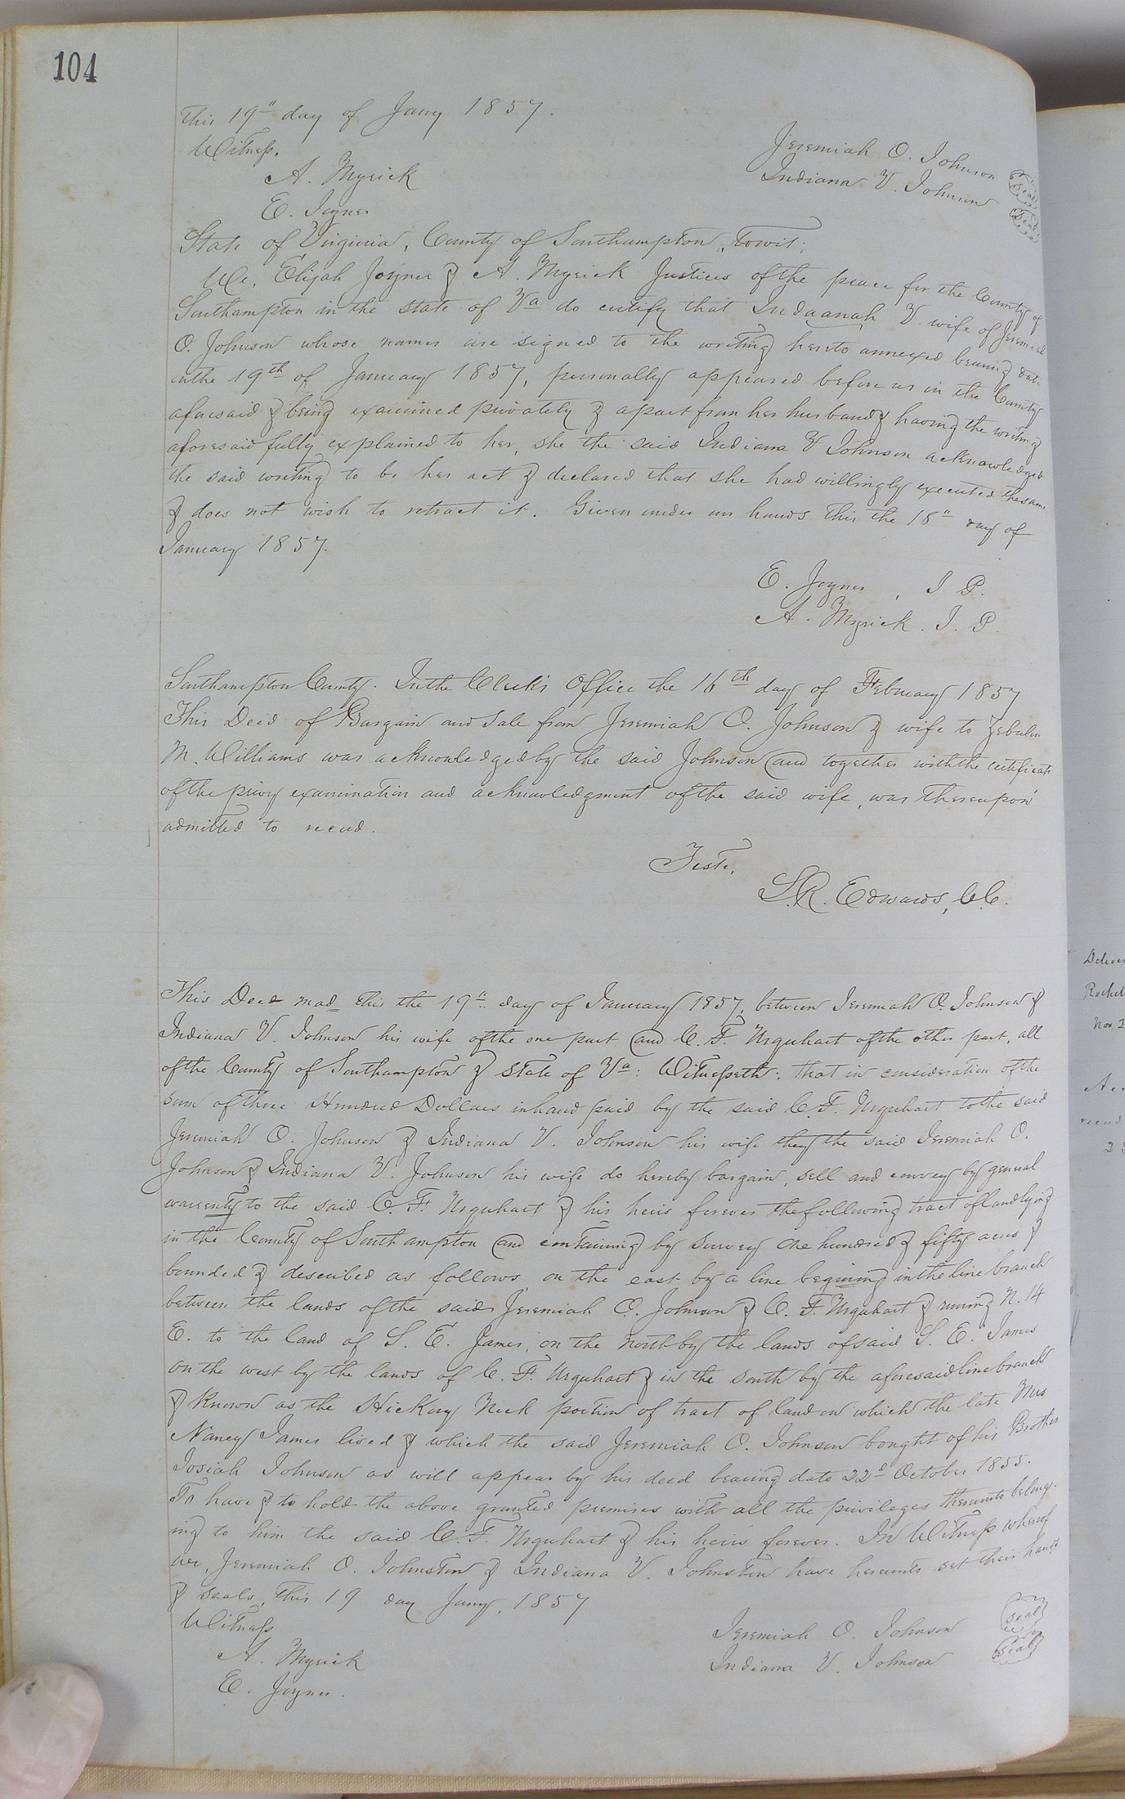 104
This 19" day of Jany 1857.
Witness.
Jeremiah O. Johnson Seal
A. Myrick
Indiana V. Johnson Seal
E. Joyner
State of Virginia, County of Southampton, towit;
We, Elijah Joyner & A. Myrick Justices of the peace for the County of
Southampton in the state of Va do certify that Indaanah V. wife of Jeremiah
O. Johnson whose names are signed to the writing hereto annexed bearing date
on the 19th of January 1857, personally appeared before us in the County
aforesaid & being examined privately & apart from her husband & having the writing
aforesaid fully explained to her, she the said Indiana V Johnson acknowledged
the said writing to be her act & declared that she had willingly executed the same
& does not wish to retract it. Given under our hands this the 18" day of
January 1857.
E. Joyner, J P.
A. Myrick. J. P.
Southampton County. In the Clerk's Office the 16th day of February 1857
This Deed of Bargain and Sale from Jeremiah O. Johnson & wife to Zebulon
M. Williams was acknowledged by the said Johnson and together with the certificate
of the privy examination and acknowledgment of the said wife, was thereupon
admitted to record.
Teste,
L.R. Edwards, C.C.
This Deed mad this the 19th day of January 1857, between Jeremiah O. Johnson &
Indiana V. Johnson his wife of the one part and C. F. Urquhart of the other part, all
of the County of Southampton & State of Va: Witnesseth: that in consideration of the
sum of three Hundred Dollars in hand paid by the said C. F. Urquhart to the said
Jeremiah O. Johnson & Indiana V. Johnson his wife they the said Jeremiah O.
Johnson & Indiana V. Johnson his wife do hereby bargain, sell and convey by general
warrenty to the said C. F. Urquhart & his heirs forever the following tract of land lying
in the County of Southampton and containing by survey one hundred & fifty acres &
bounded & described as follows, on the east by a line begining in the line branch
between the lands of the said Jeremiah O. Johnson & C. F. Urquhart & runing N. 14
E. to the land of S. E. James, on the north by the lands of said S. E. James
on the west by the lands of C. F. Urquhart & in the south by the aforesaid line branch
& known as the Hickory Neck portion of tract of land on which the late Mrs
Nancy James lived & which the said Jeremiah O. Johnson bought of his Brother
Josiah Johnson as will appear by his deed bearing date 22d October 1855.
To have & to hold the above granted premises with all the privileges thereunto belong-
ing to him the said C. F. Urquhart & his heirs forever. In Witness whereof
we, Jeremiah O. Johnston & Indiana V. Johnston have hereunto set their hands
& seals, this 19 day Jany, 1857
Witness
Jeremiah O. Johnson Seal
A. Myrick
Indiana V. Johnson Seal
E. Joyner.